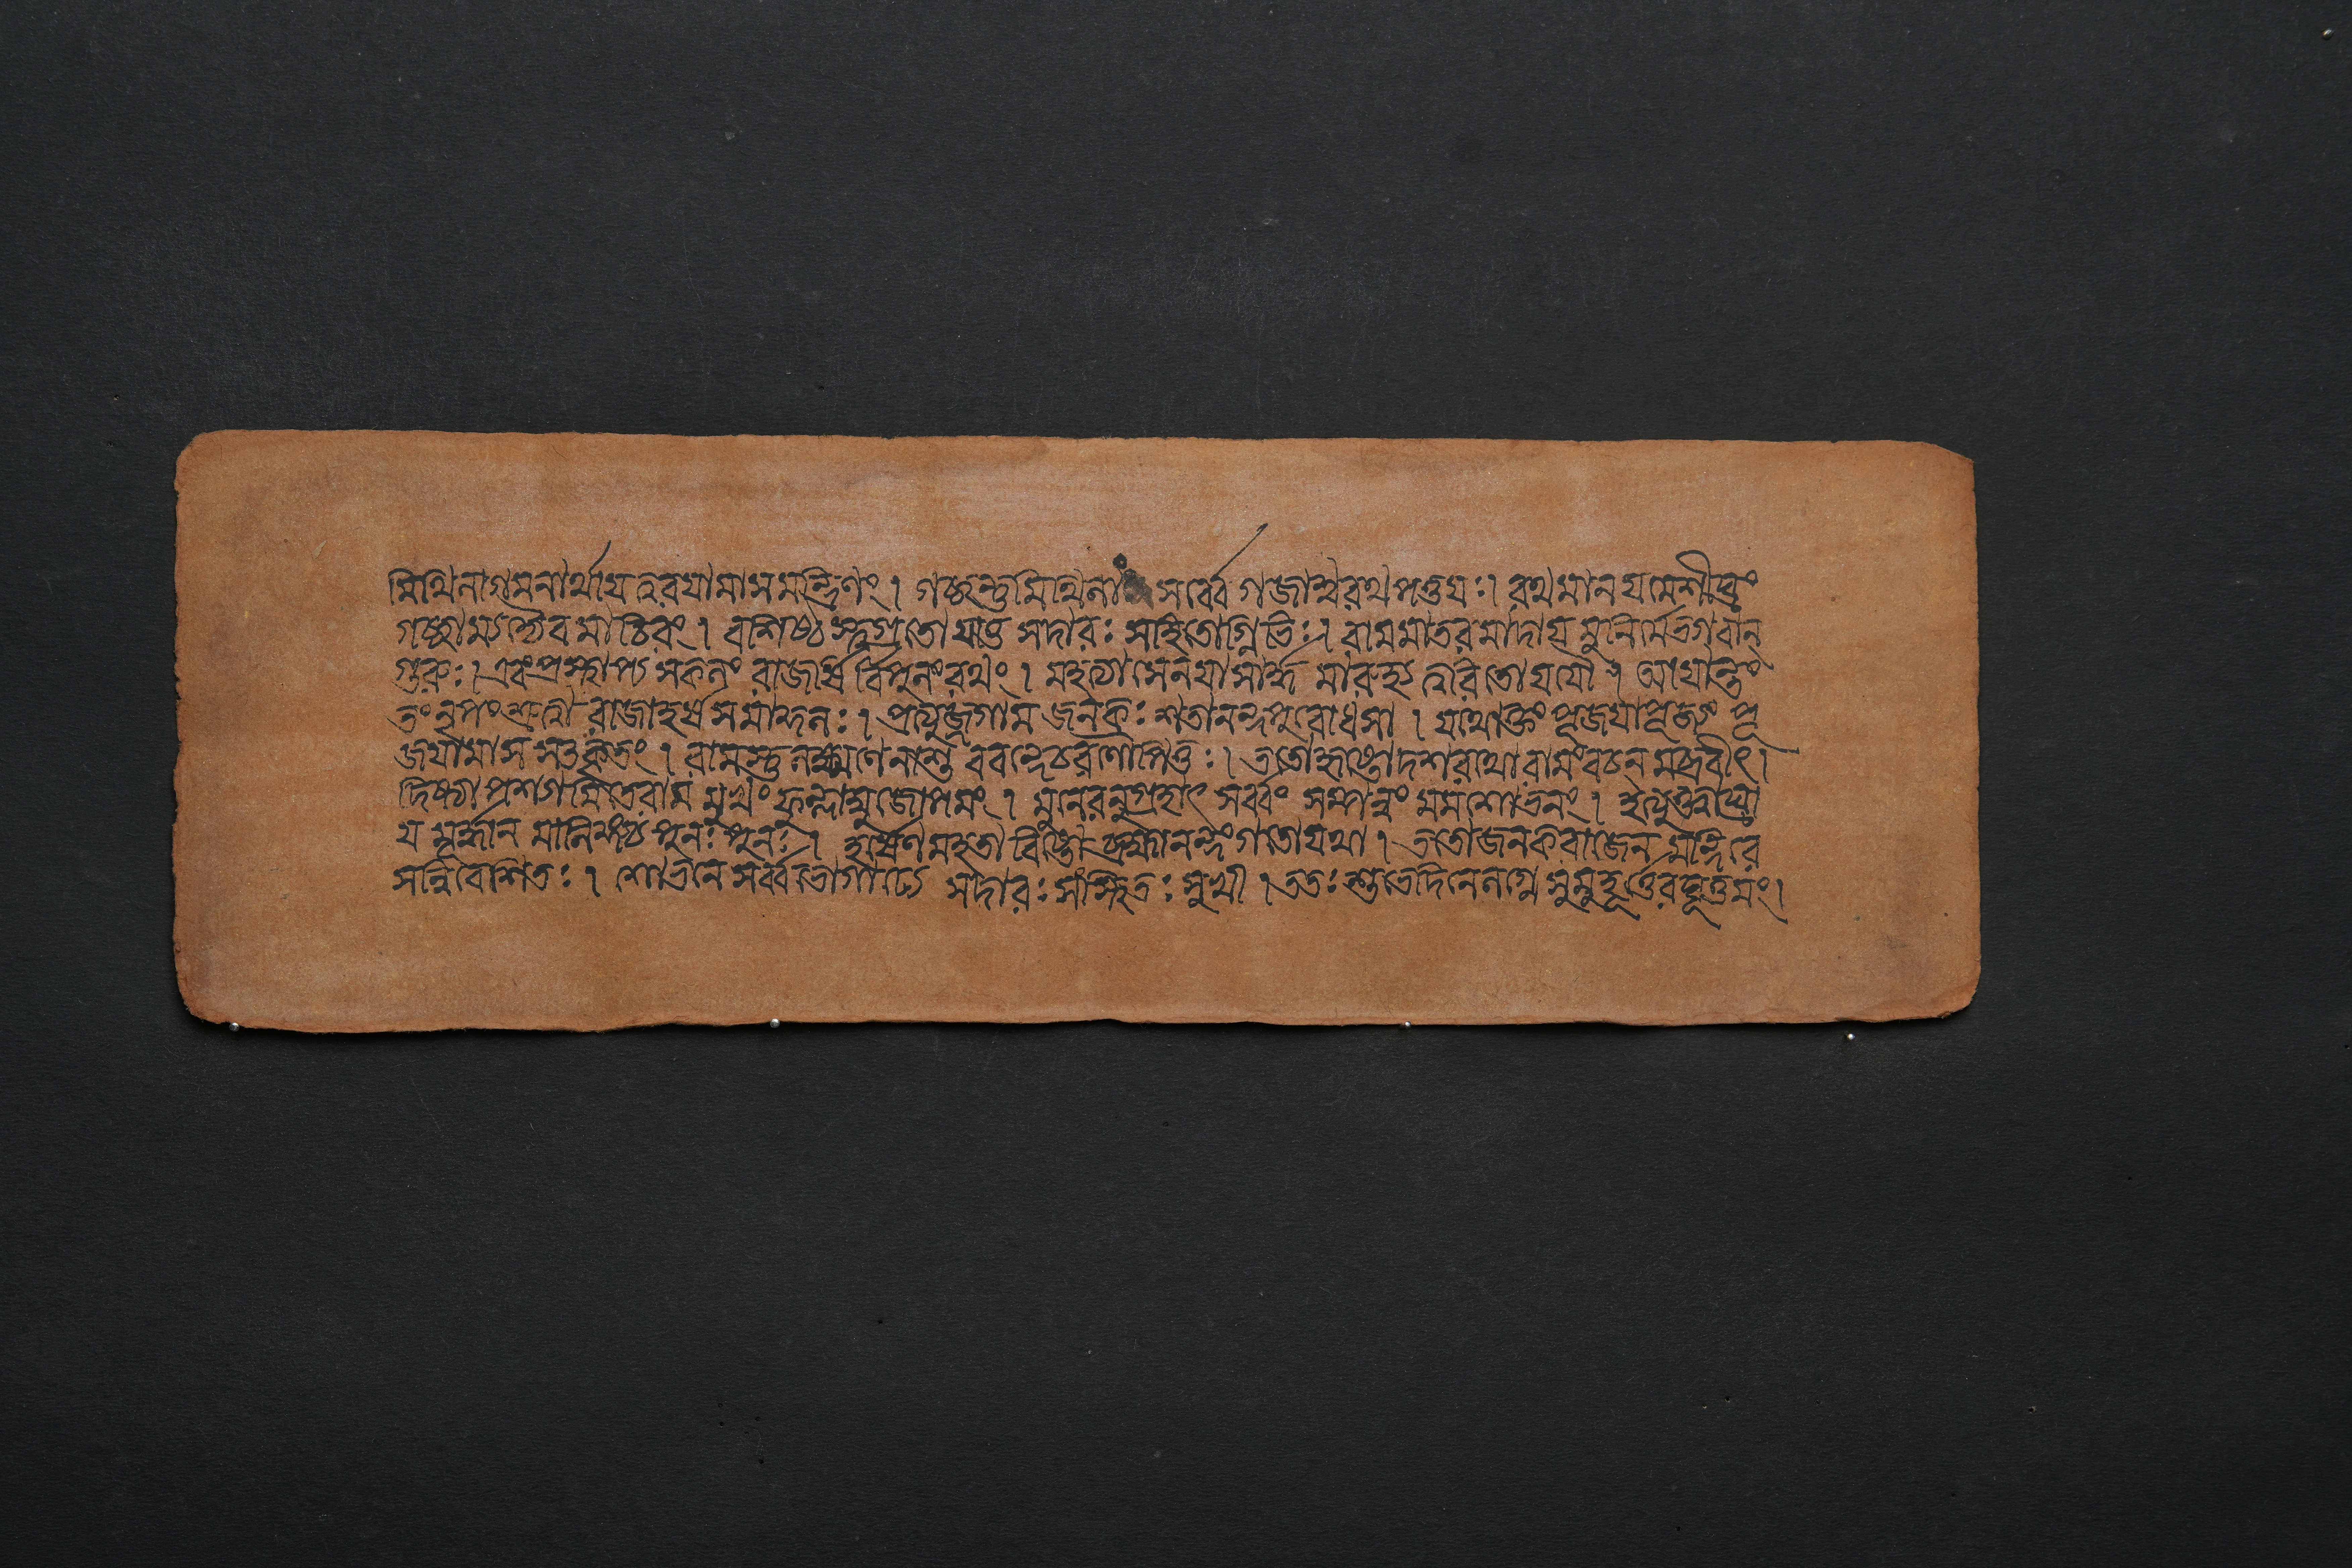 মিথিলাগমনার্থায় ত্বরয়ামাস মন্ত্রিণং । গচ্ছন্তু মিথিলাং সর্ব্বে গজাশ্বরথপত্তয়ঃ । রথমানয় মে শীঘ্রং
গচ্ছাম্যদ্যৈব মাচিরং । বশিষ্ঠস্ত্বগ্রতো যাতু সদারঃ সহিতোগ্নিভিঃ । রামমাতৃরমাদায় মুনির্মে ভগবান্
গুরুঃ । এবং প্রস্থাপ্য সকলং রাজর্ষির্বিপুলং রথং । মহত্যা সেনয়া সার্দ্ধ মারুহ্য ত্বরিতো যযৌ । আয়ান্তং
তং নৃপং শ্রুত্বা রাজা হর্ষসমাকুলঃ । প্রত্যুজ্জগাম জনকঃ শতানন্দপুরোধসা । যথোক্তং পূজয়া পূজ্যং পূ
জয়ামাস সতকৃতং । রামস্তু লক্ষ্মণেনাশু ববন্দে চরণৌ পিতুঃ । ততো হৃষ্টো দশরথো রামং বচন মব্রবীৎ ।
দিষ্ট্যা পশ্যামি তে রাম মুখং ফুল্লাম্বুজোপমং । মুনেরনুগ্রহাৎ সর্ব্বং সম্পন্নং মম শোভনং । ইত্যুক্তাঘ্রা
য় মূর্দ্ধান মালিঙ্গ্য পুনঃ পুনঃ । হর্ষেণ মহতা বিষ্টো ব্রহ্মানন্দং গতো যথা । ততো জনকরাজেন মন্দিরে
সন্নিবেশিতঃ । শোভনে সর্ব্বভোগাঢ্যে সদারঃ সসুতঃ সুখী । ততঃ শুভে দিনে লগ্নে সুমুহূর্ত্তে রঘূত্তমং ।